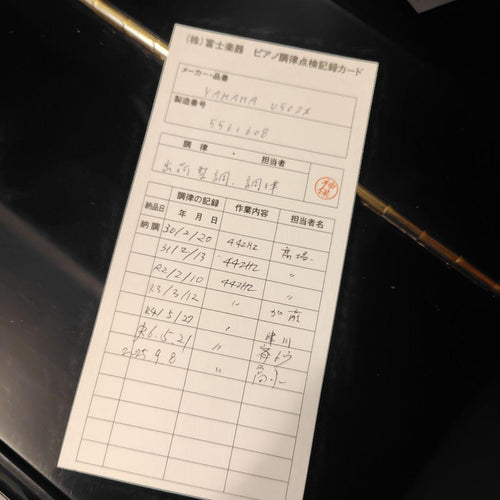 (株)富士楽器 ピアノ調律点検記録カード
メーカー・品番
YAMAHA U50SX
製造番号
5561608
調律・担当者
出荷整調、調律
調律の記録 作業内容 担当者名
納品日 年月日
納調 30/2/20 442HZ 高橋
31/2/13 442HZ 〃
R2/2/10 442HZ 〃
R3/3/12 〃
R4/5/27 〃 津川
R6.5.21 〃
2025 9 8 〃